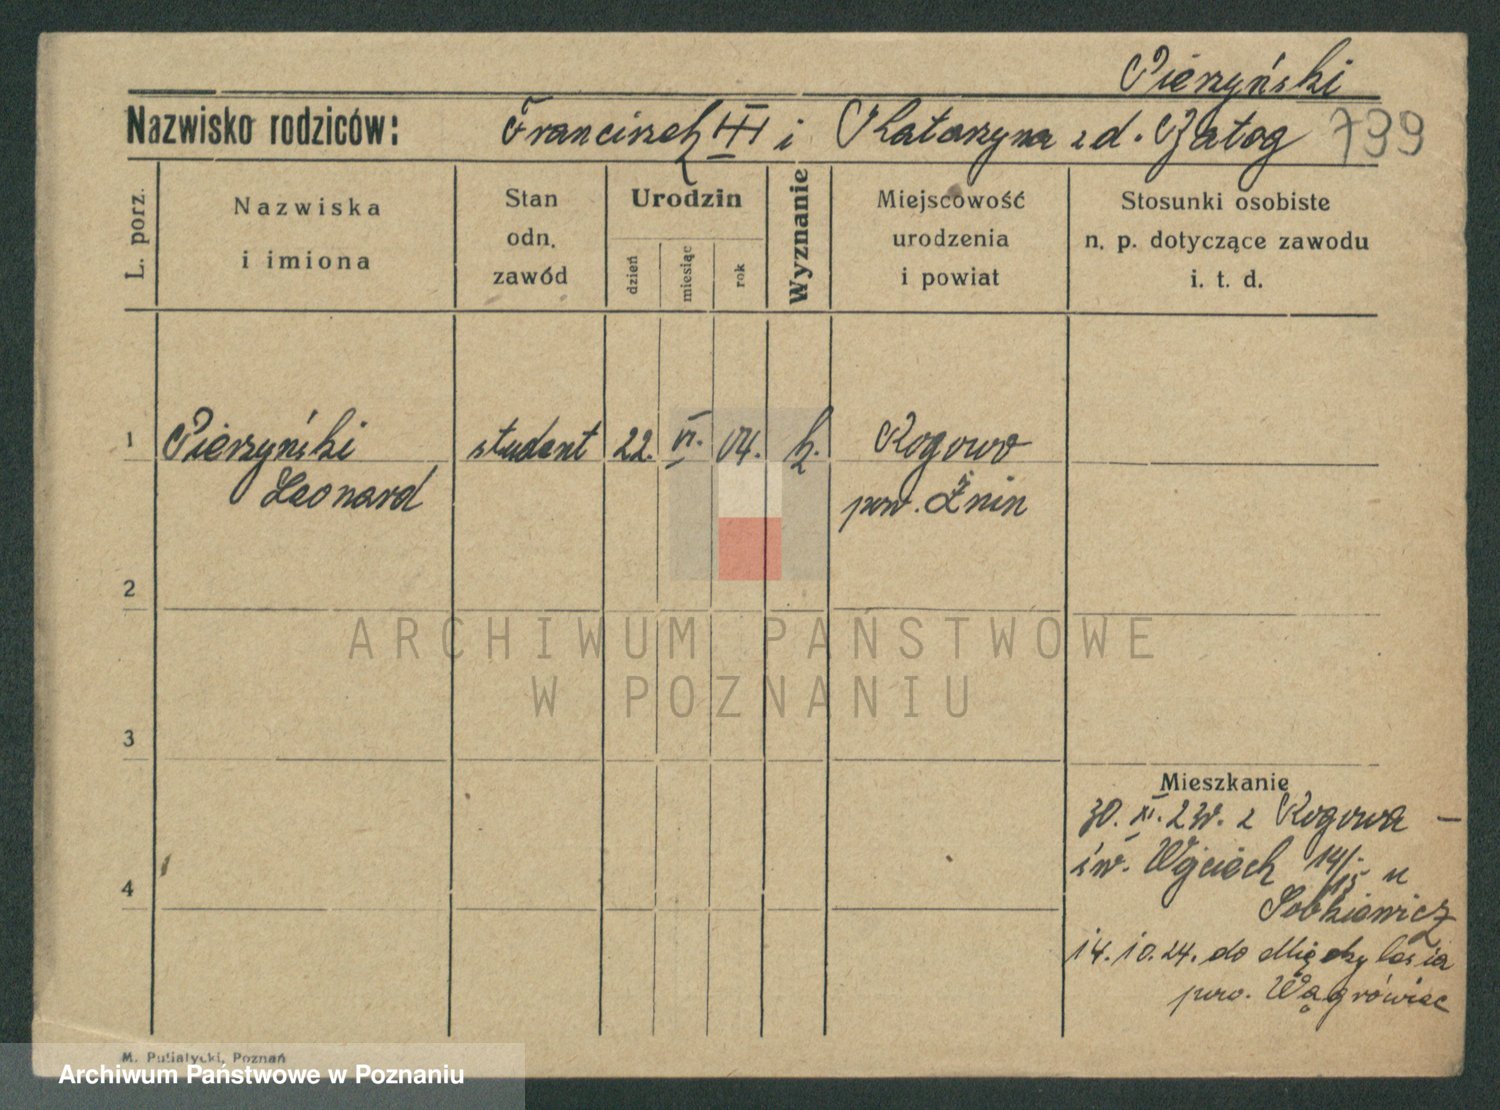 Pierzyński
Nazwisko rodziców: Franciszek III i Katarzyna z d. Załog 799
L. porz.
Nazwiska
i imiona
Stan
odn.
zawód
Urodzin
dzień
miesiąc
rok
Wyznanie
Miejscowość
urodzenia
i powiat
Stosunki osobiste
n. p. dotyczące zawodu
i. t. d.
1 Pierzyński student 22. VI. 04. k. Rogowo
Leonard pow. Żnin
2
3
4
Mieszkanie
30. XI. 23r. z Rogowa —
św. Wojciech 14/15 u
Sobkiewicz
14. 10. 24. do Międzylesia
pow. Wągrówiec
M. Putiatycki, Poznań
ARCHIWUM PAŃSTWOWE
W POZNANIU
Archiwum Państwowe w Poznaniu